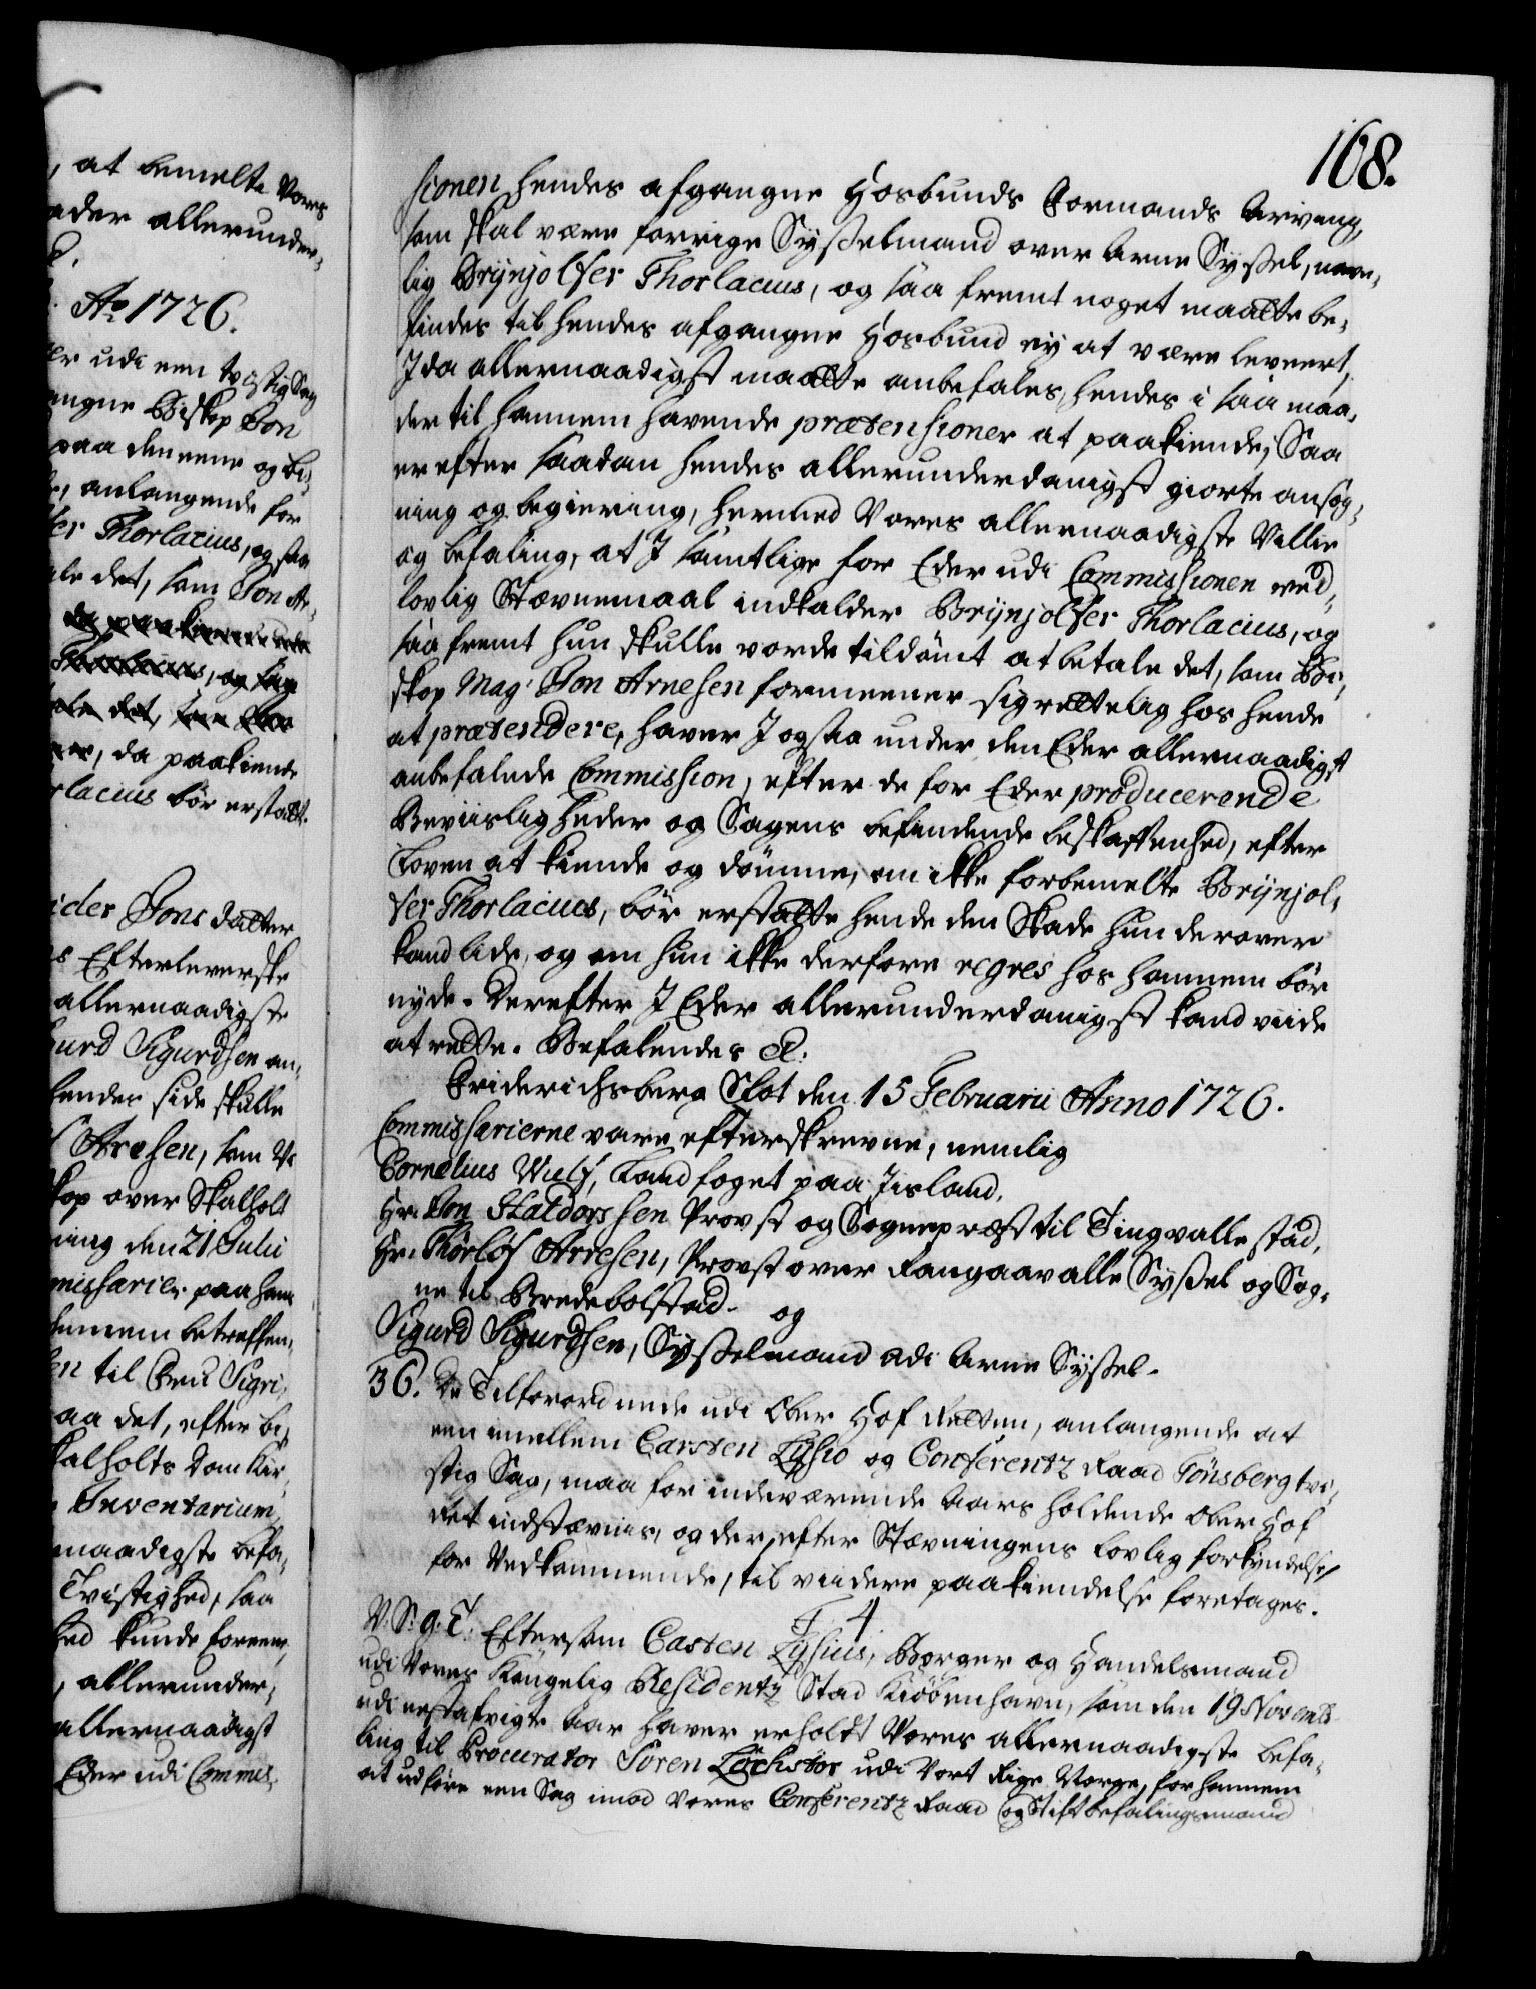 , at bemelte Vores
ader allerunder¬
d.
Ao 1726.
er udi een tvistig Sag
angne Biskop Jon
paa den eene og Bi¬
, anlangende for
fer Thorlacius, og saa
ale det, som Jon Ar¬
da paakiende
Thorlacius, og saa
ale det, som
er, da paakiende
rlacius bör erstatt.
ider Jons datter
s Efterleverske
allernaadigste
gurd Sigurdsen an¬
hendes side skulle
Aresen, som Vi
skop over Skalholt
ning den 21 Julii
missarier paa ham
hannem betreffen¬
en til Frue Sigri¬
aa det, efter bi¬
kalholts Dom Kir¬
Inventarium
rnaadigste befa¬
Tvistighed, saa
hed kunde foreen¬
, allerunder¬
allernaadigst
Eder udi Commis¬
168.
sionen hendes afgangne Hosbunds Formands Arving,
som skal være forrige Sysselmand over Arne Syssel, nem¬
lig Brynjolfer Thorlacius, og saa fremt noget maatte be¬
findes til hendes afgangne Hosbund ey at være leveret,
I da allernaadigst maatte anbefales, hendes i saa maa¬
der til hannem havende prætensioner at paakiende, Saa
er efter saadan hendes allerunderdanigst giorte ansög¬
ning og begiering, hermed Vores allernaadigste Villie
og befaling, at I samtlige for Eder udi Commissionen ved
lovlig Stævnemaal indkalder Brynjolfer Thorlacius, og
saa fremt hun skulle vorde tildömt at betale det, som Bi¬
skop Mag: Jon Arnesen formeener sig rættelig hos hende
at prætendere, haver I ogsaa under den Eder allernaadigst
anbefalede Commission, efter de for Eder producerende
Beviisligheder og Sagens befindende beskaffenhed, efter
Loven at kiende og dömme, om ikke forbemelte Brynjol¬
fer Thorlacius, bör erstatte hende den Skade hun derover
kand lide, og om hun ikke derfore regres hos hannem bör
nyde. Derefter I Eder allerunderdanigst kand viide
at rette. Befalendes &.
Friderichsberg Slot den 15 Februarii Anno 1726.
Commissarierne vare efterskrevne, nemlig
Cornelius Wulf, Landfoget paa Iisland,
Hr: Jon Haldorssen Provst og Sognepræst til Tingvalle stad,
Hr: Thorlof Arresen, Provst over Rangaavalle Syssel og Sog¬
ne til Bredebolstad. og
Sigurd Sigurdsen, Sysselmand udi Arne Syssel.
36. De Tilforordnede udi Ober Hof Retten, anlangende at
een imellem Carsten Lysio og Conferentz Raad Tönsberg tvi¬
stig Sag, maa for indeværende Aars holdende Ober Hof
Ret indstævnis, og der, efter Stævningens lovlig forkyndelse
for Vedkommende, til viidere paakiendelse foretages.
F 4
V. S. g. T. Eftersom Casten Lysius, Borger og Handelsmand
udi Vores Kongelig Residentz Stad Kiöbenhavn, som den 19 Novemb
udi næstafvigte Aar haver erholdt Vores allernaadigste befa¬
ling til Procurator Sören Löchstör udi Vort Rige Norge, for hannem
at udföre een Sag imod Vores Conferentz Raad og Stiftbefalingsmand